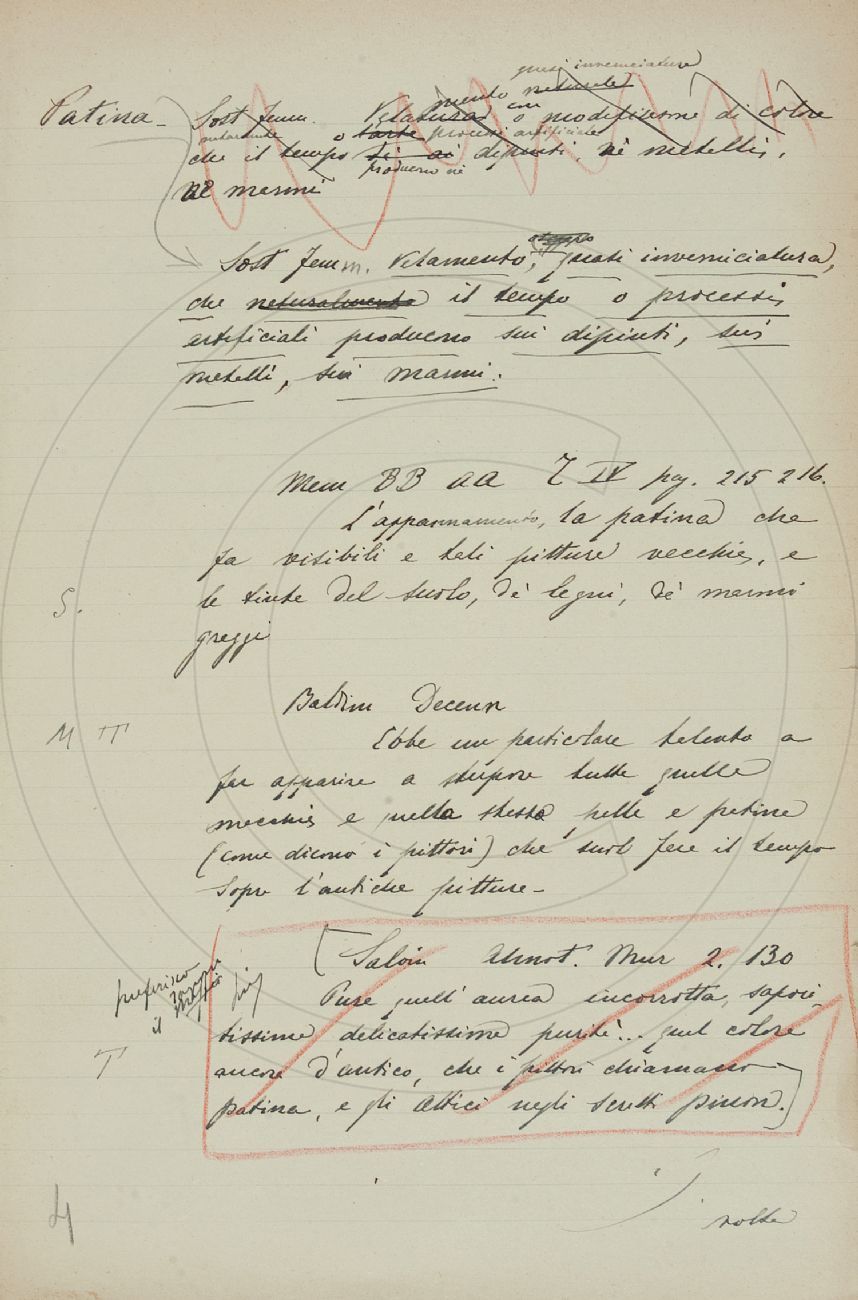 quasi inverniciatura
mento naturale
Patina - Sost femm. Velatura con o modificazione di colore
naturale o l'arte processi artificiale
che il tempo si ai dipinti, nè metalli,
producono nè
nè marmi
Sost femm. Velamento, quasi inverniciatura,
che naturalmente il tempo o processi
artificiali producono sui dipinti, sui
metalli, sui marmi.
Mem BB AA T IV pag. 215 216.
L'appannamento, la patina che
fa visibili e tali pitture vecchie, e
S. le tinte del suolo, de' legni, de' marmi
greggi
Baldin Decenn
M TT Ebbe un particolare talento a
far apparire a stupore tutte quelle
macchie e quella stessa pelle e patina
(come dicono i pittori) che suol fare il tempo
sopra l'antiche pitture -
(Salvin Annot. Mur 2. 130
preferisco
il
più Pure quell'aurea incorrotta, sapori-
tissima delicatissima purità... quel colore
T ancora d'antico, che i pittori chiamano
patina, e gli Attici negli scritti pinon.)
4
volta